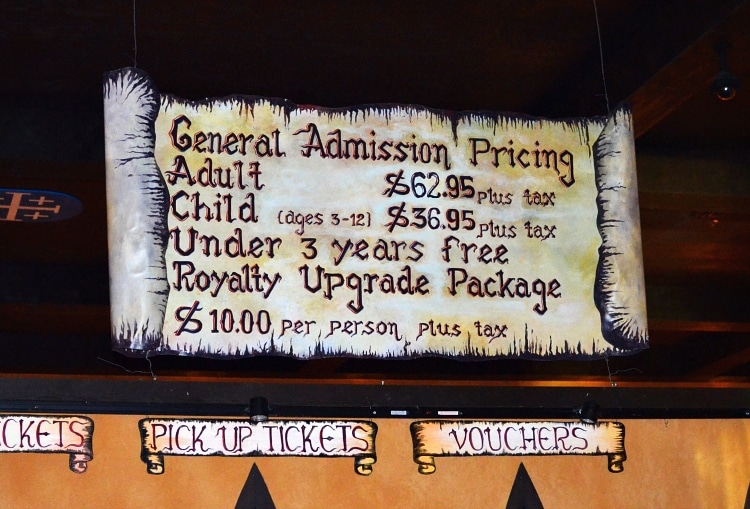 General Admission Pricing
Adult $62.95 plus tax
Child (ages 3-12) $36.95 plus tax
Under 3 years free
Royalty Upgrade Package
$10.00 per person plus tax
CKETS
PICK UP TICKETS
VOUCHERS